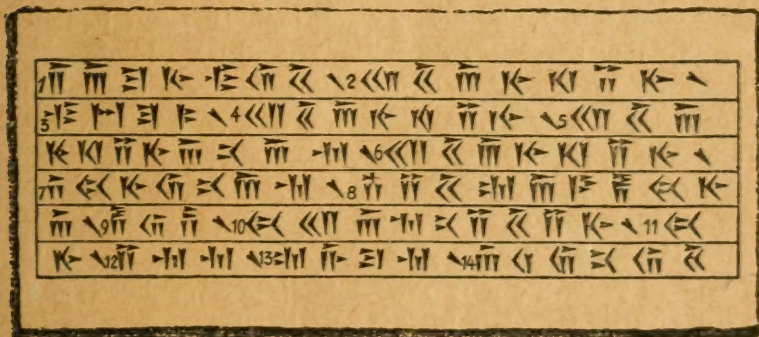 1𐎭𐎠𐎼𐎹𐎺𐎢𐏁𐏐2𐎧𐏁𐎠𐎹𐎰𐎡𐎹𐏐
3𐎺𐏀𐎼𐎣𐏐4𐎧𐏁𐎠𐎹𐎰𐎡𐎹𐏐5𐎧𐏁𐎠
𐎹𐎰𐎡𐎹𐎠𐎴𐎠𐎶𐏐6𐎧𐏁𐎠𐎹𐎰𐎡𐎹𐏐
7𐎭𐏃𐎹𐎢𐎴𐎠𐎶𐏐8𐎻𐎡𐏁𐎫𐎠𐎿𐎱𐏃𐎹
𐎠𐏐9𐎱𐎢𐏂𐏐10𐏃𐎧𐎠𐎶𐎴𐎡𐏁𐎡𐎹𐏐11𐏃
𐎹𐏐12𐎡𐎶𐎶𐏐13𐎫𐎨𐎼𐎶𐏐14𐎠𐎤𐎢𐎴𐎢𐏁